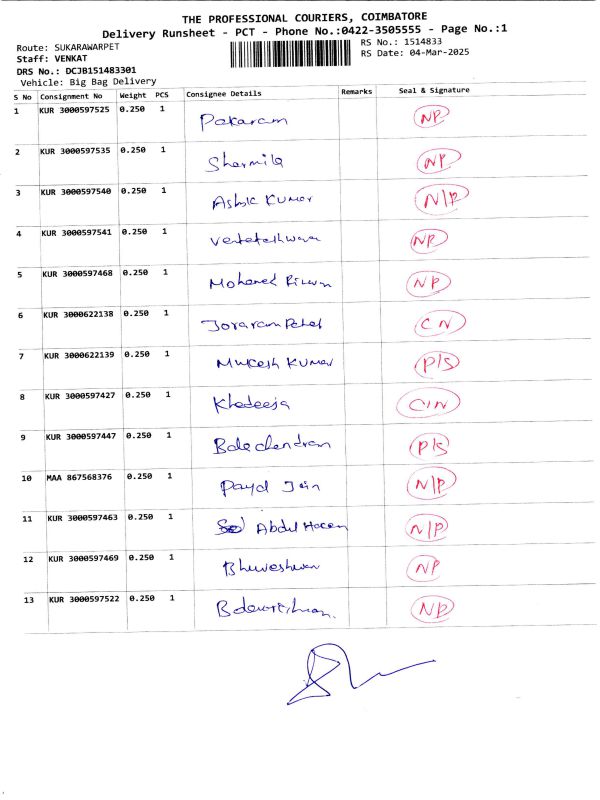 THE PROFESSIONAL COURIERS, COIMBATORE
Delivery Runsheet - PCT - Phone No.:0422-3505555 - Page No.:1
Route: SUKARAWARPET
RS No.: 1514833
Staff: VENKAT
RS Date: 04-Mar-2025
DRS No.: DCJB151483301
Vehicle: Big Bag Delivery
S No Consignment No Weight PCS Consignee Details Remarks Seal & Signature
1 KUR 3000597525 0.250 1 Pakaram NP
2 KUR 3000597535 0.250 1 Sharmila NP
3 KUR 3000597540 0.250 1 Ashok Kumar N/P
4 KUR 3000597541 0.250 1 NP
5 KUR 3000597468 0.250 1 Mohamed NP
6 KUR 3000622138 0.250 1 Joraram Patel CN
7 KUR 3000622139 0.250 1 Mukesh Kumar P/S
8 KUR 3000597427 0.250 1 Khadeeja C/N
9 KUR 3000597447 0.250 1 Balachandran P/S
10 MAA 867568376 0.250 1 Payal Jain N/P
11 KUR 3000597463 0.250 1 Abdul Hasan N/P
12 KUR 3000597469 0.250 1 Bhuveshwar NP
13 KUR 3000597522 0.250 1 NP